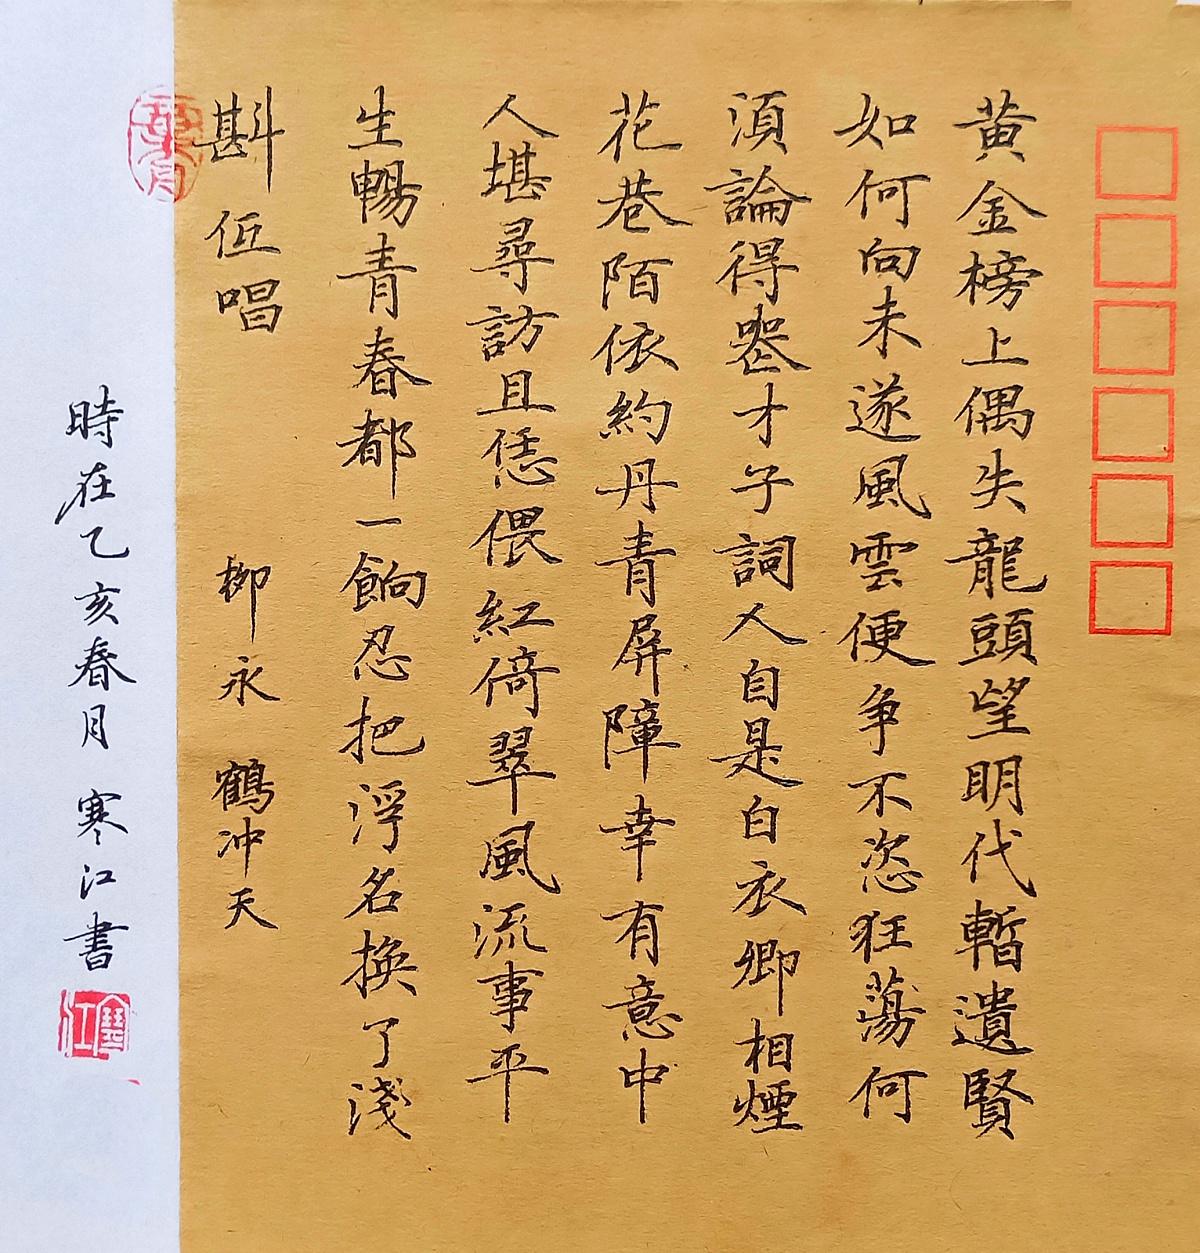 黄金榜上偶失龍頭望明代暫遺賢
如何向未遂風雲便争不恣狂蕩何
湏論得喪才子詞人自是白衣卿相煙
花巷陌依約丹青屏障幸有意中
人堪尋訪且恁偎紅倚翠風流事平
生暢青春都一餉忍把浮名換了淺
斟低唱 柳永 鶴冲天
時在乙亥春月 寒江書
寒江